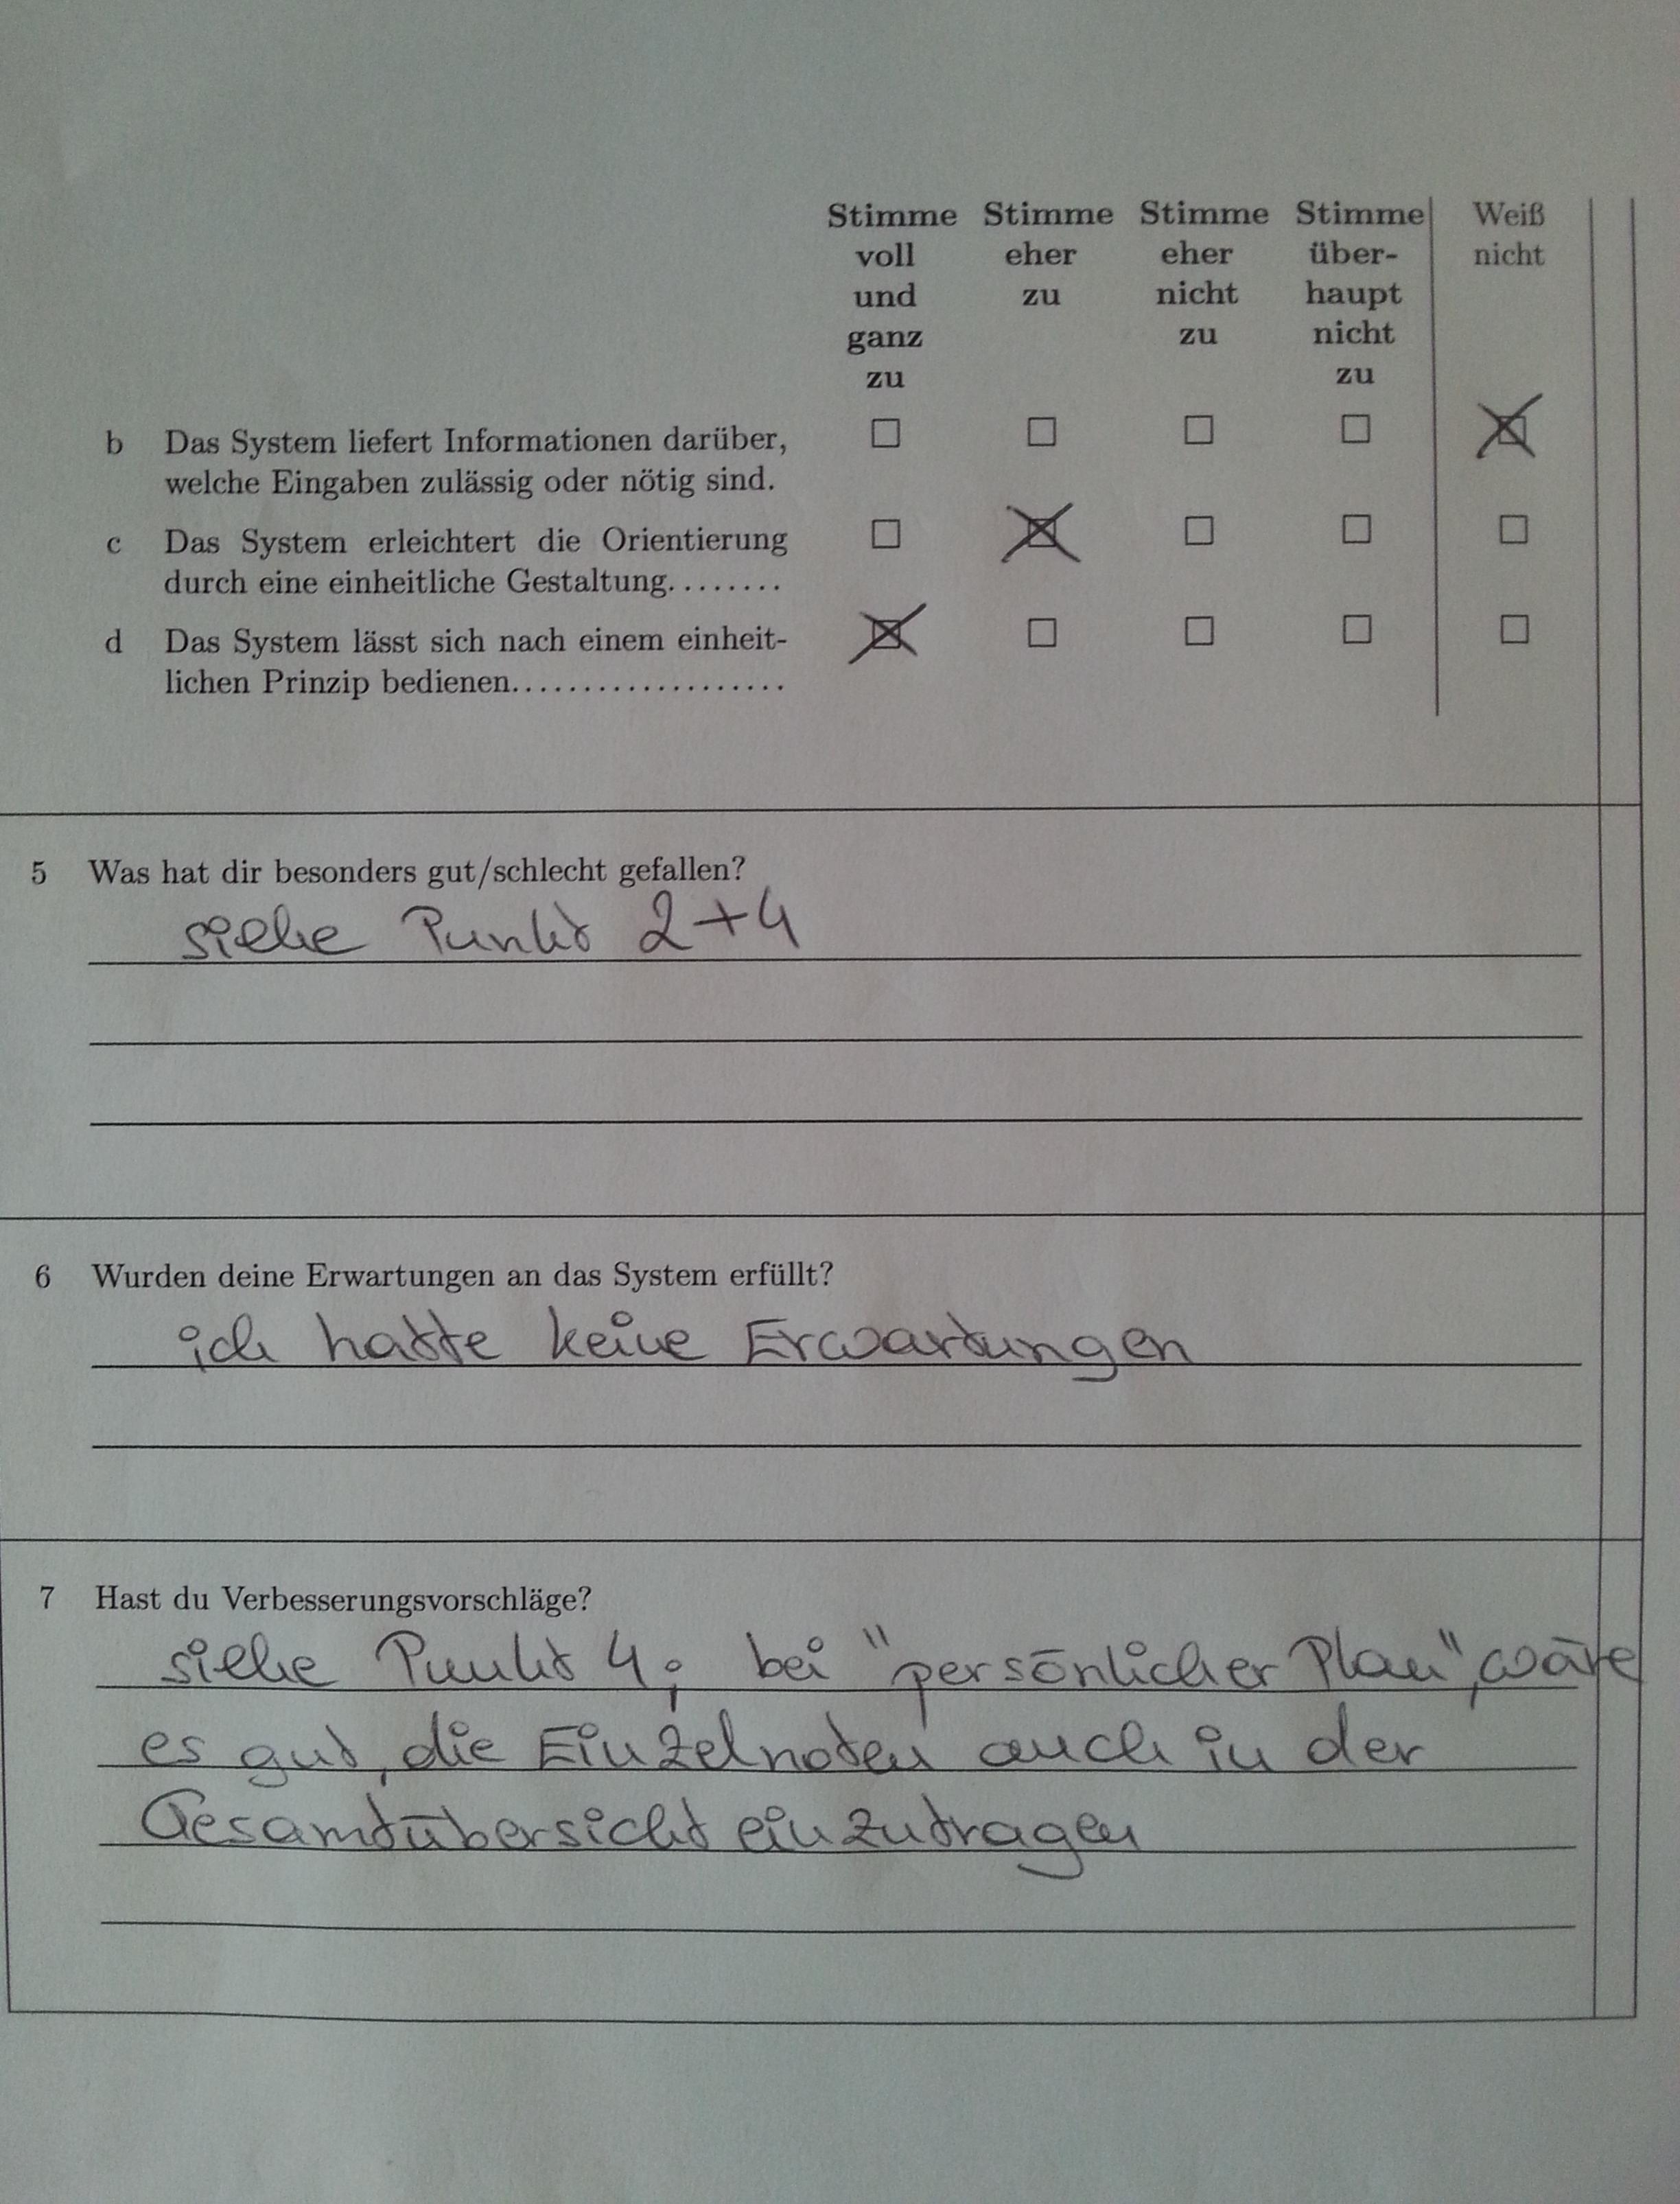 Stimme Stimme Stimme Stimme Weiß
voll eher eher über- nicht
und zu nicht haupt
ganz zu nicht
zu zu
b Das System liefert Informationen darüber,
welche Eingaben zulässig oder nötig sind.
c Das System erleichtert die Orientierung
durch eine einheitliche Gestaltung........
d Das System lässt sich nach einem einheit-
lichen Prinzip bedienen...................
5 Was hat dir besonders gut/schlecht gefallen?
siehe Punkt 2+4
6 Wurden deine Erwartungen an das System erfüllt?
ich hatte keine Erwartungen
7 Hast du Verbesserungsvorschläge?
siehe Punkt 4; bei "persönlicher Plan", wäre
es gut, die Einzelnoten auch in der
Gesamtübersicht einzutragen